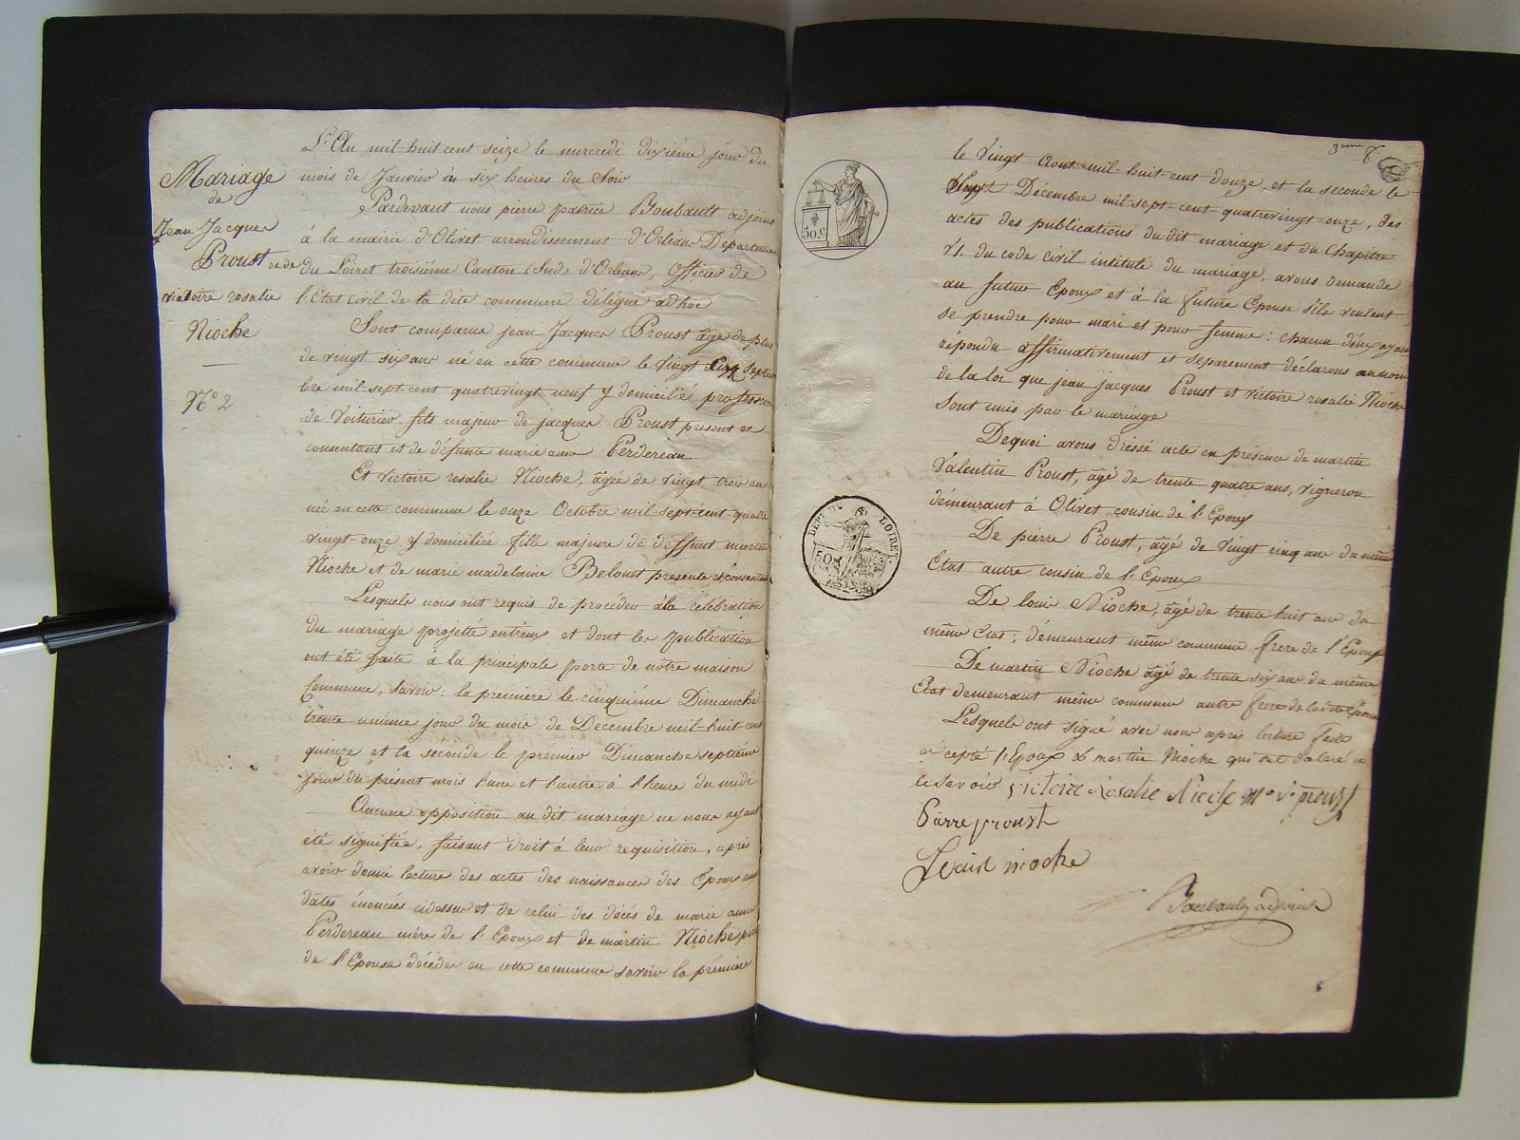 Mariage
de
Jean Jacques
Proust et de
victoire rosalie
Nioche
N° 2
L'An mil huit cent seize le mercredi dixième jour du
mois de Janvier à six heures du Soir
Pardevant nous pierre patrice Boubault adjoint
à la mairie d'Olivet arrondissement d'Orléans Departement
du Loiret troisiéme Canton (Sud) d'Orleans, officier de
l'Etat civil de la dite commune délégué adhoc
Sont comparus jean Jacques Proust âgé de plus
de vingt six ans né en cette commune le vingt septem
bre mil sept cent quatrevingt neuf y domicilié profession
de Voiturier fils majeur de jacques Proust present et
consentant et de défunte marie anne Perdereau
Et victoire rosalie Nioche, âgée de vingt trois ans
né en cette commune le onze Octobre mil sept cent quatre
vingt onze y domiciliée fille majeure de deffunt martin
Nioche et de marie madelaine Belouet presente et consentante
Lesquels nous ont requis de proceder à la célébration
du mariage projetté entreux et dont les publications
ont été faite à la principale porte de nôtre maison
Commune, Savoir: la première le cinquiéme Dimanche
trente unième jour du mois de Decembre mil huit cent
quinze et la séconde le premier Dimanche septième
jour du présent mois l'une et l'autre à l'heure du midi
Aucune opposition au dit mariage ne nous ayant
été signifiée, faisant droit à leur requisition, après
avoir donné lecture des actes des naissances des Epoux aux
dates énoncés cidessus et de celui des décés de marie anne
Perdereau mère de l'Epoux et de martin Nioche père
de l'Epouse décédés en cette commune savoir la première
3eme 8
le Vingt Aout mil huit cent douze et la seconde le
Sept Décembre mil sept cent quatrevingt onze, des
actes des publications du dit mariage et du Chapitre
VI. du code civil intitulé du mariage, avons demandé
au futur Epoux et à la future Epouse s'ils veulent
se prendre pour mari et pour femme: chacun d'eux ayant
répondu affirmativement et separement déclarons au nom
de la loi que jean jacques Proust et victoire rosalie Nioche
Sont unis par le mariage
Dequoi avons dressé acte en présence de martin
Valentin Proust, âgé de trente quatre ans, vigneron
démeurant à Olivet cousin de l'Epoux
De pierre Proust, âgé de vingt cinq ans du même
Etat autre cousin de l'Epoux
De louis Nioche, âgé de trente huit ans du
même Etat, démeurant même commune frere de l'Epouse
De martin Nioche âgé de trente six ans du même
Etat demeurant même commune autre frere de la dite Epouse
Lesquels ont signé avec nous après lecture faite
excepté l'Epoux & martin Nioche qui ont déclaré ne
le savoir victoire Rosalie Nioche M. v. proust
Pierre proust
Louis nioche
Boubault adjoint
50 c
DEPT DU LOIRET
50 c